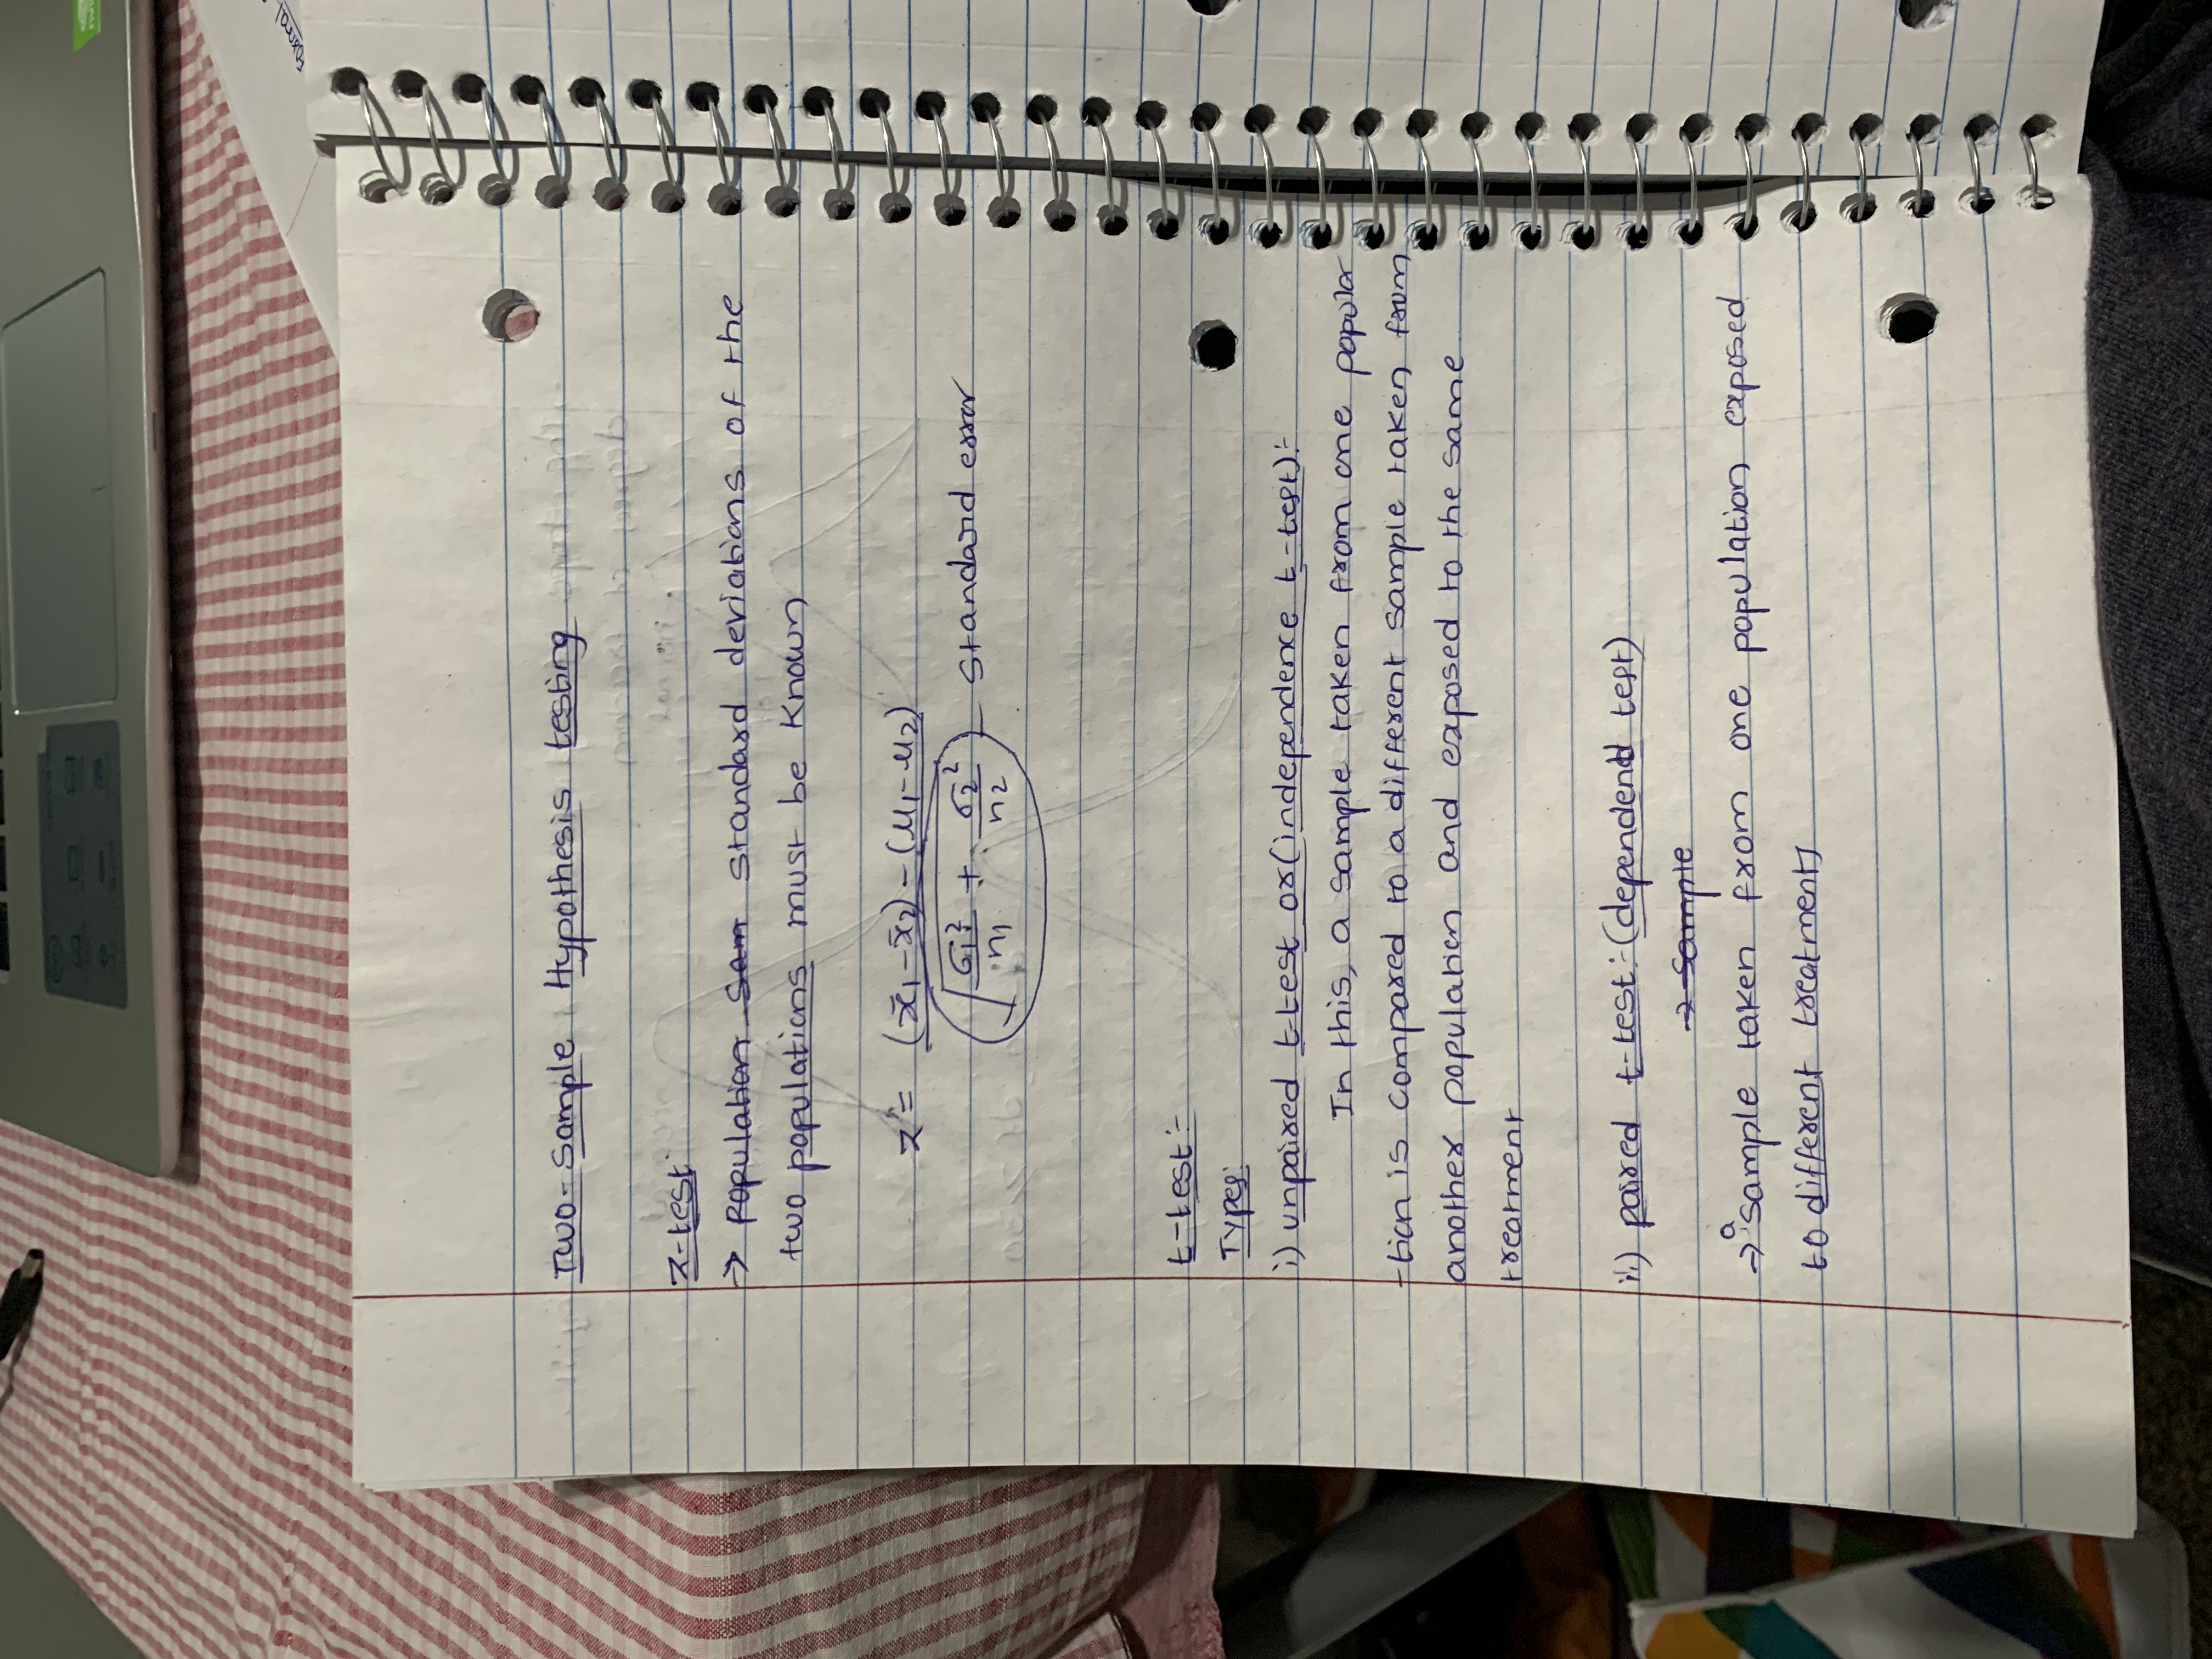 Formal
Two-Sample Hypothesis testing
Z-test
→ population sam standard deviations of the
two populations must be known
z = (x̄1-x̄2)-(μ1-μ2)
√ σ1²/n1 + σ2²/n2 - standard error
t-test:-
Types:
i) unpaired t-test or (independence t-test):-
In this, a sample taken from one popula
-tion is compared to a different sample taken from
another population and exposed to the same
treatment
ii) paired t-test:- (dependent test)
→ sample
→ a sample taken from one population exposed
to different treatments